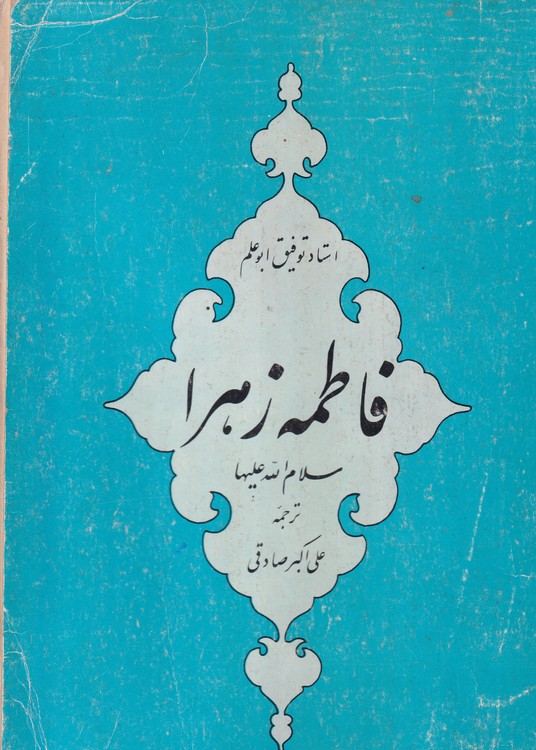 استاد توفیق ابوعلم
فاطمه زهرا
سلام الله علیها
ترجمه
علی اکبر صادقی